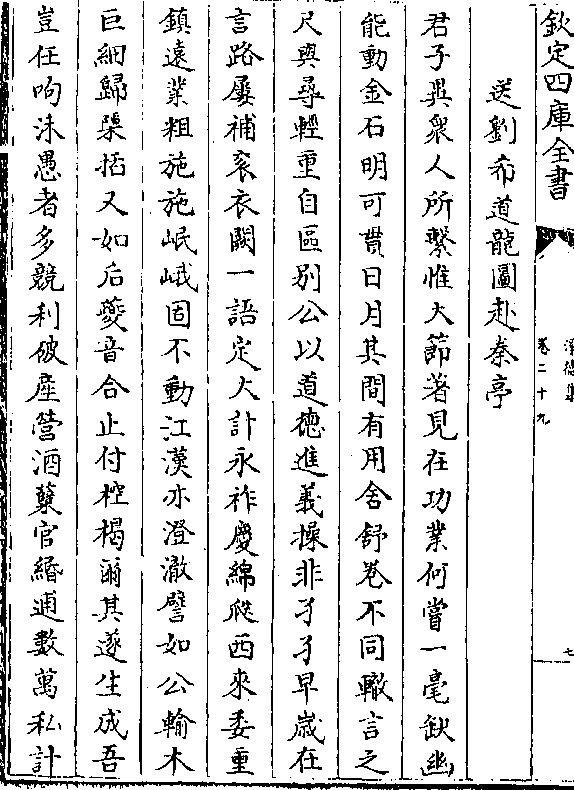 欽定四庫全書
淨德集
卷二十九
七
送劉希道龍圖赴秦亭
君子與衆人所繫惟大節著見在功業何嘗一毫缺幽
能動金石明可貫日月其間有用舍舒卷不同轍言之
尺與尋輕重自區別公以道德進義操非孑孑早歲在
言路屢補衮衣闕一語定大計永祚慶綿瓞西來委重
鎮遠業粗施施岷峨固不動江漢亦澄澈譬如公輸木
巨細歸槩括又如后夔音合止付椌楬爾其遂生成吾
豈任呴沫愚者多競利破產營酒蘖官緡逋數萬私計